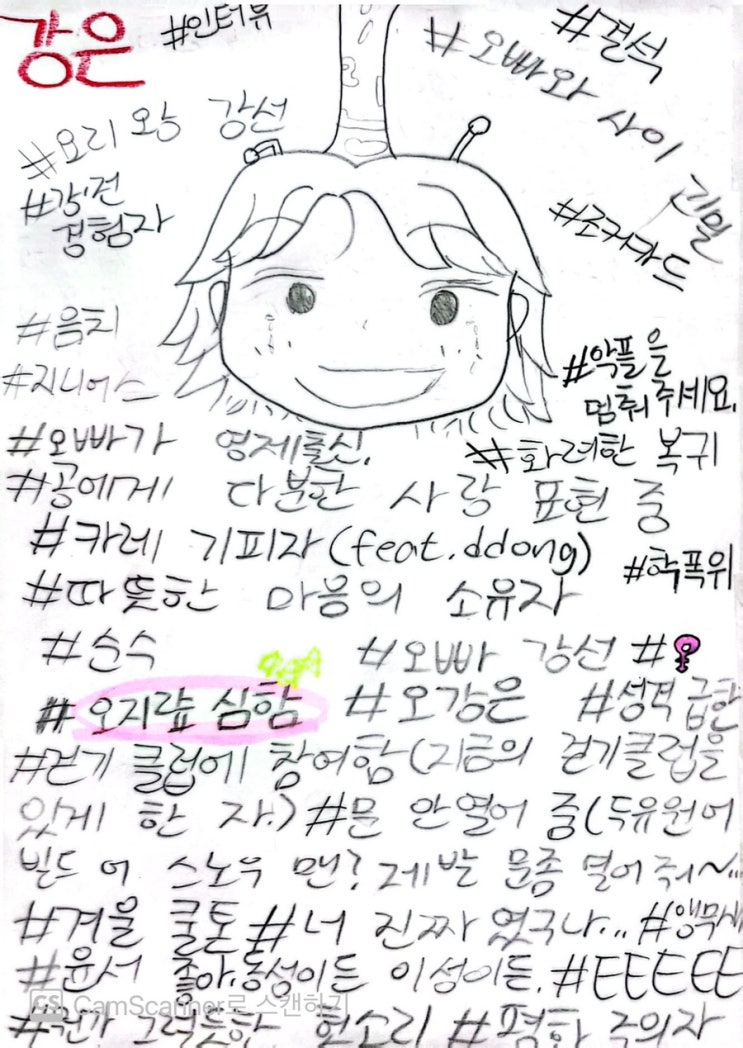 강은
#인터뷰
#결석
#오빠와 사이 긴밀
#요리 왕 강선
#강·건
경험자
#조커카드
#음치
#지니어스
#악플을
멈춰주세요.
#오빠가 영제출신.
#화려한 복귀
#공에게 다분한 사랑 표현 중
#카레 기피자(feat.ddong)
#학폭위
#따뜻한 마음의 소유자
#순수
#오빠 강선 #
#오지랖 심함 #오강은 #성격 급한
#걷기 클럽에 참여함(지금의 걷기클럽을
있게 한 자.) #문 안열어 줌(두유원어
빌드 어 스노우 맨? 제발 문좀 열어줘~...
#겨울 쿨톤 #너 진짜 였구나... #앵무새
#윤서 좋아.동성이든 이성이든. #EEEEE
CS CamScanner로 스캔하기
#뭔가 그럴듯한 헛소리 #평화주의자